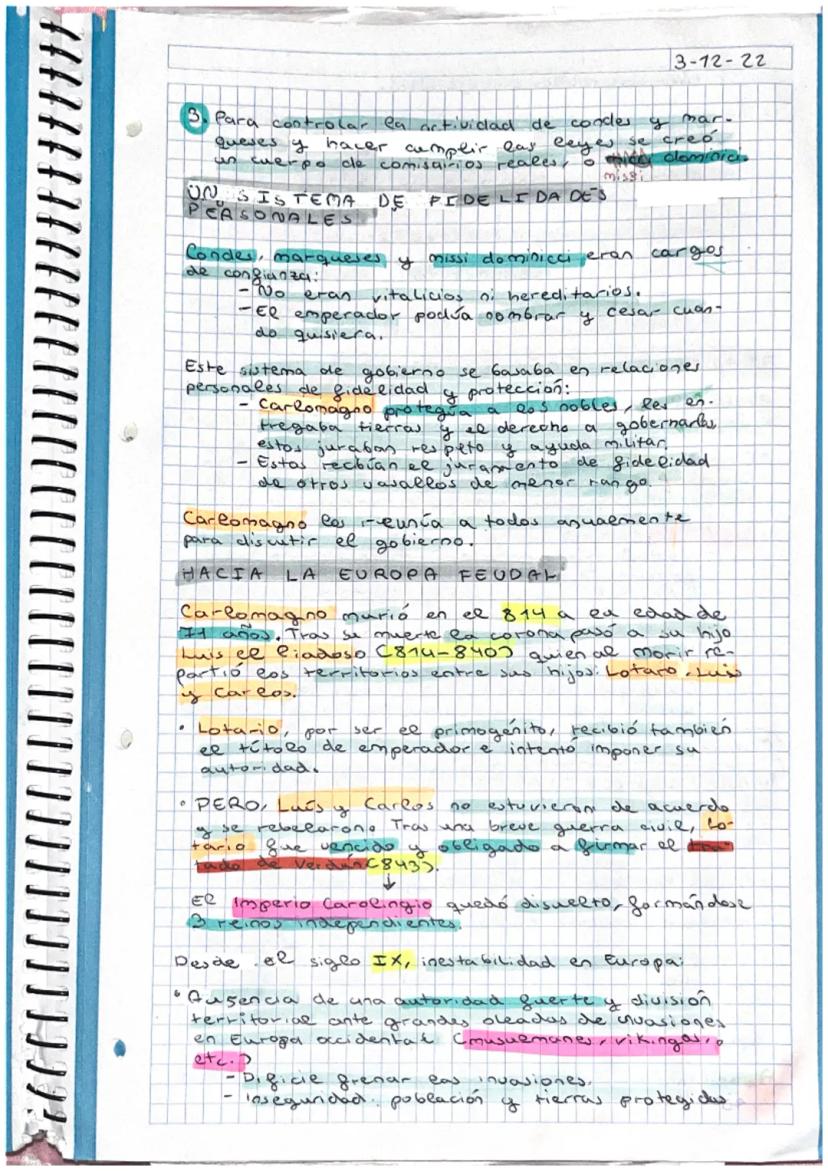 3-12-22
3. Para controlar la actividad de condes y mar-
queses y hacer cumplir las leyes se creó
un cuerpo de comisarios reales, o dominici.
missi
UN SISTEMA DE FIDELIDADES
PERSONALES
Condes, marqueses y missi dominicci eran cargos
de confianza:
- No eran vitalicios ni hereditarios.
- El emperador podía nombrar y cesar cuan-
do quisiera.
Este sistema de gobierno se basaba en relaciones
personales de fidelidad y protección:
- Carlomagno protegía a los nobles, les en-
tregaba tierras y el derecho a gobernarlas
estos juraban respeto y ayuda militar.
- Estos recibían el juramento de fidelidad
de otros vasallos de menor rango.
Carlomagno los reunía a todos anualmente
para discutir el gobierno.
HACIA LA EUROPA FEUDAL
Carlomagno murió en el 814 a la edad de
71 años. Tras su muerte la corona pasó a su hijo
Luis el Piadoso (814-840) quien al morir re-
partió los territorios entre sus hijos: Lotaro, Luis
y Carlos.
• Lotario, por ser el primogénito, recibió también
el título de emperador e intentó imponer su
autoridad.
• PERO, Luis y Carlos no estuvieron de acuerdo
y se rebelaron. Tras una breve guerra civil, Lo-
tario fue vencido y obligado a firmar el tra-
tado de Verdún (843).
↓
El Imperio Carolingio quedó disuelto, formándose
3 reinos independientes.
Desde el siglo IX, inestabilidad en Europa:
• Ausencia de una autoridad fuerte y división
territorial ante grandes oleadas de invasiones
en Europa occidental (musulmanes, vikingos,
etc.)
- Dificil frenar las invasiones.
- Inseguridad población y tierras protegidas